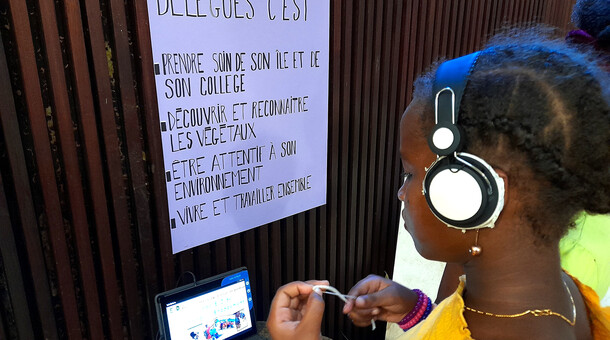 DÉLÉGUÉS C'EST
PRENDRE SOIN DE SON ÎLE ET DE
SON COLLÈGE
DÉCOUVRIR ET RECONNAÎTRE
LES VÉGÉTAUX
ÊTRE ATTENTIF À SON
ENVIRONNEMENT
VIVRE ET TRAVAILLER ENSEMBLE